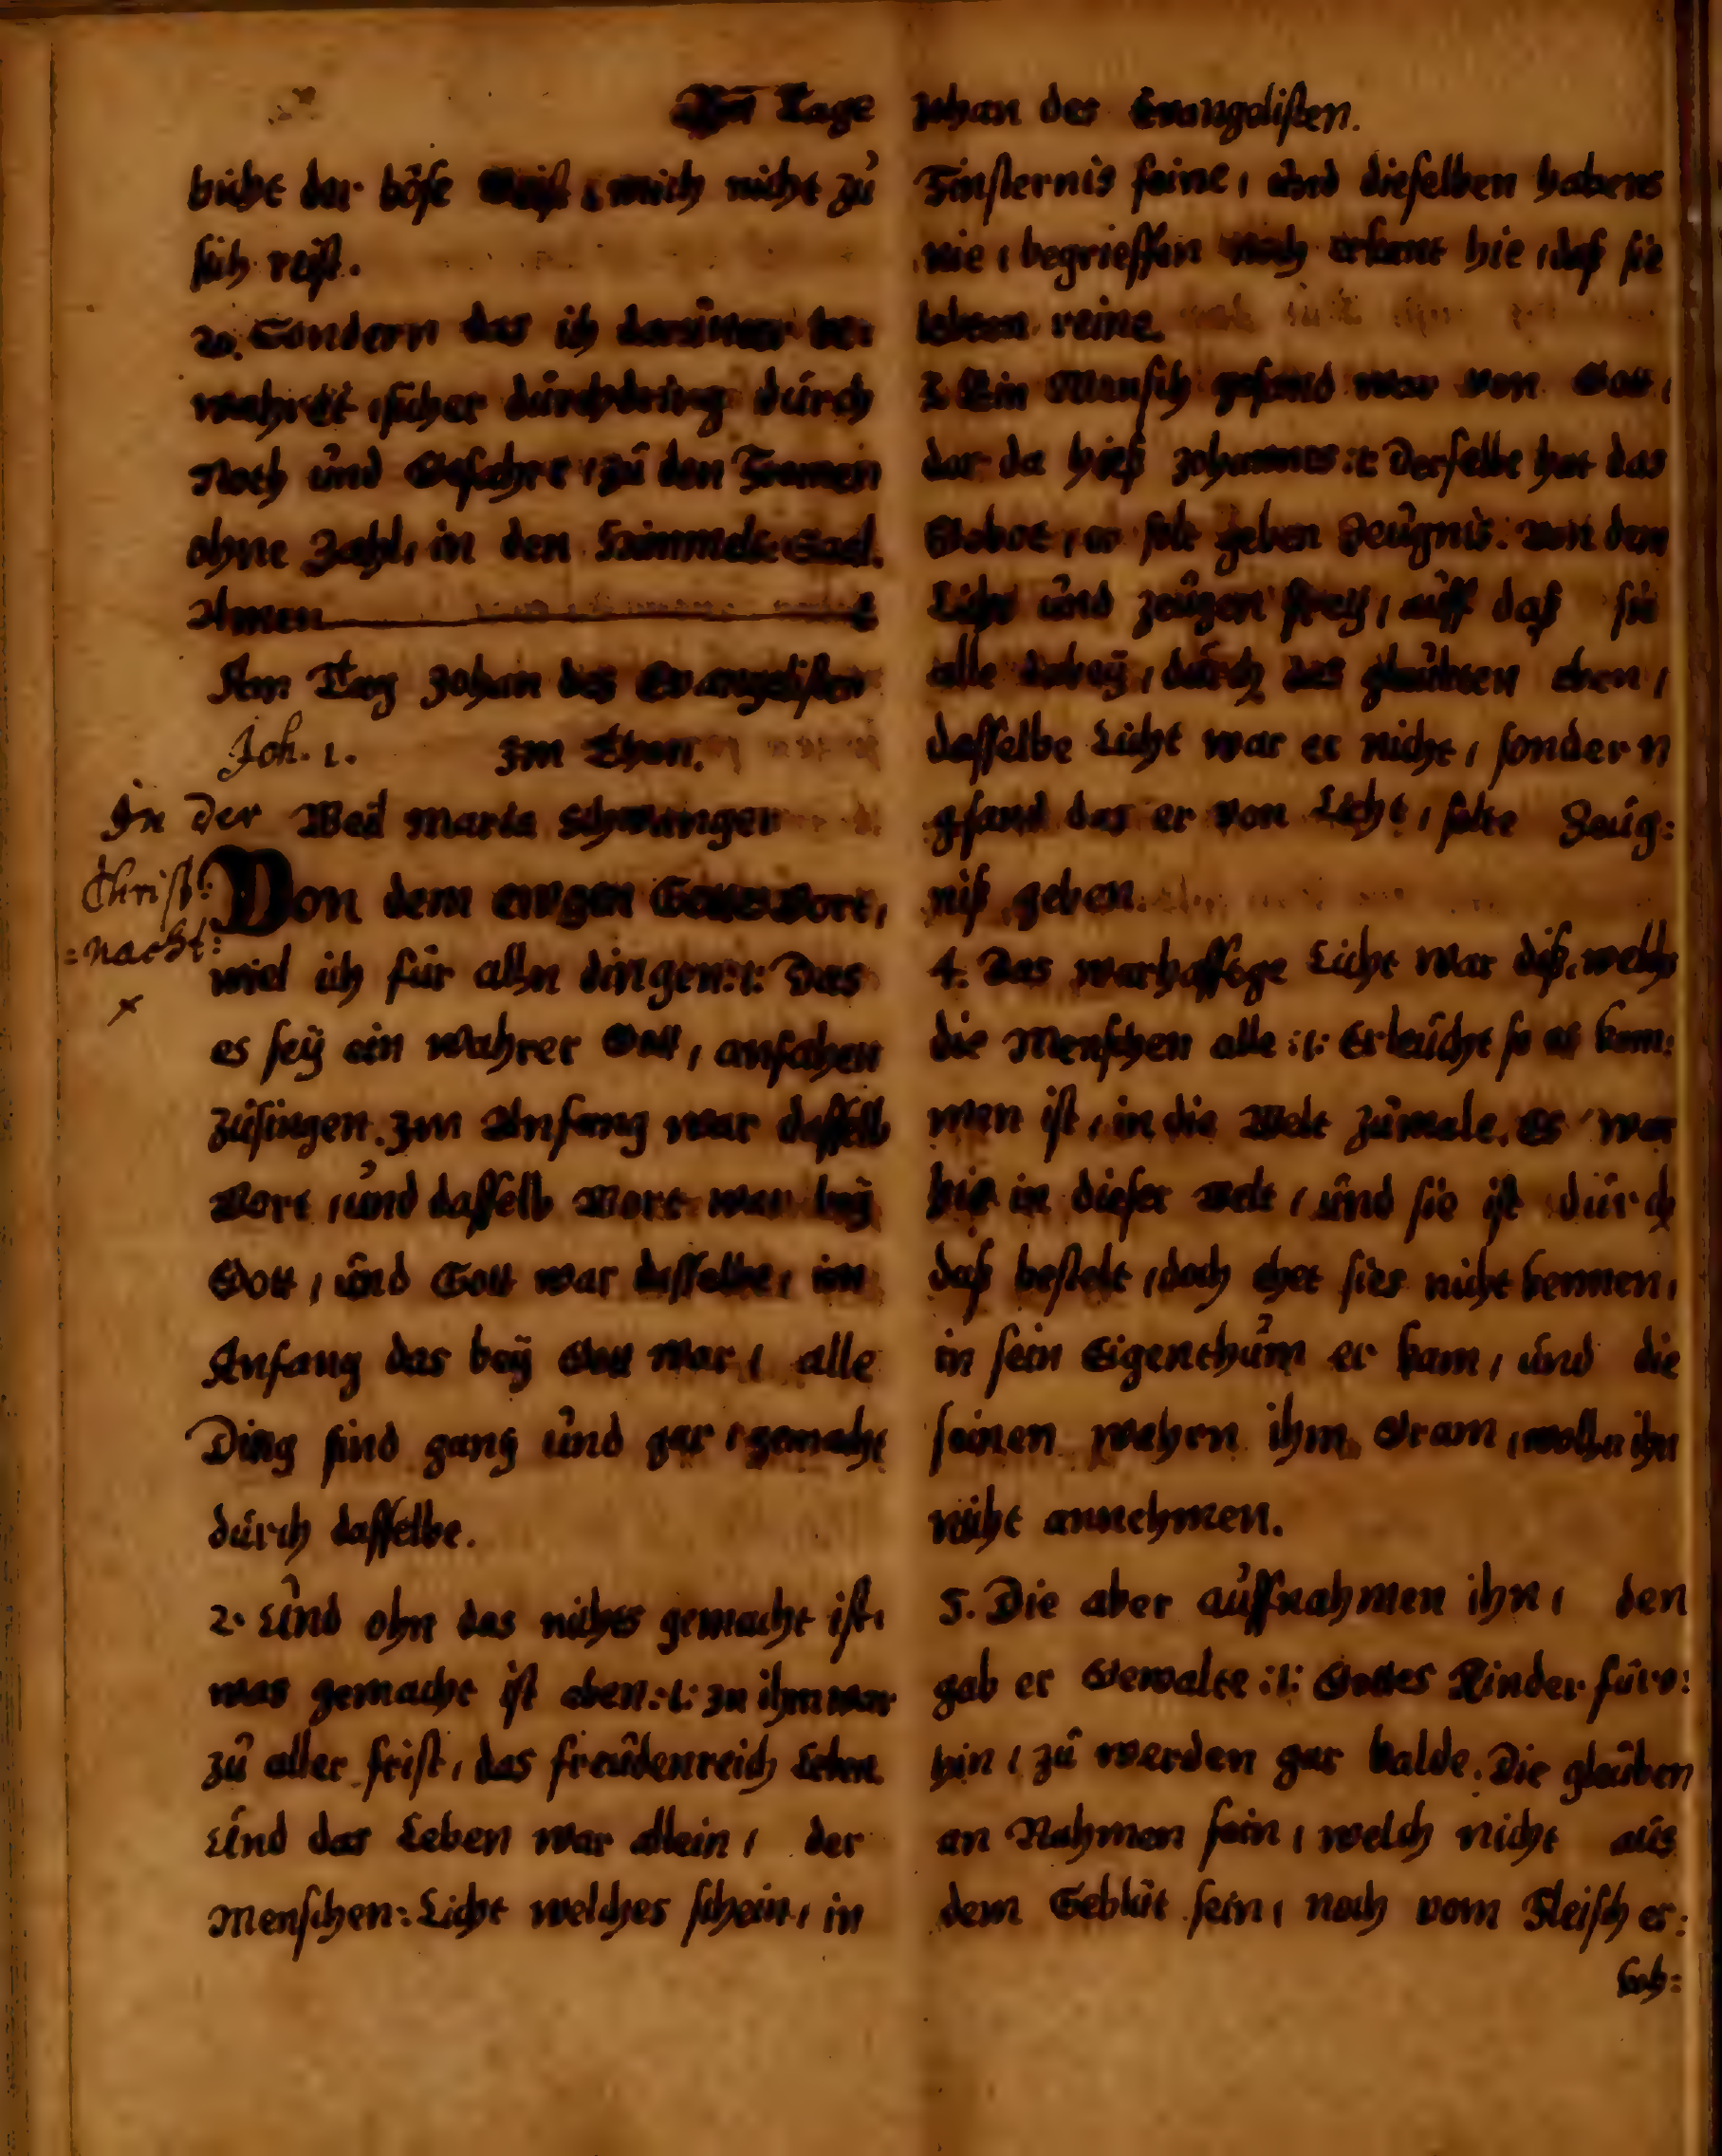 Am Tage Johan des Evangelisten.
bricht der böse Geist, mich nicht zu
sich reist.
20. Sondern das ich darunter be:
wahret, sicher durchdring durch
Noth und Gefahre, zu den Fromen
ohne Zahl, in den Himmels Saal.
Amen
Am Tag Johan des Evangelisten
Joh. 1. Im Thon.
In der Weil Maria schwanger
Christ:
=nacht:
Von dem ewgen Gottes Wort,
wiel ich für alln dingen :/: Das
es seÿ ein wahrer Gott, anfahen
zusingen. Im Anfang war dasselb
Wort, und dasselb Wort war beÿ
Gott, und Gott war dasselbe, im
Anfang das beÿ Gott war, alle
Ding sind gantz und gar, gemacht
durch dasselbe.
2. Und ohn das nichts gemacht ist,
was gemacht ist eben :/: In ihm war
zu aller frist, das freudenreich Leben.
Und das Leben war allein, der
Menschen: Licht welches schein, in
Finsternis seine, und dieselben habens
nie, begrieffen noch erkant hie, daß sie
lebten reine.
3. Ein Mensch gesand war von Gott,
der da hieß Johannes :/: Derselbe hat das
Gebot, er solt geben Zeugnis. Von dem
Licht und zeugen freÿ, auff daß sie
alle dabeÿ, durch das glaubten eben,
dasselbe Licht war er nicht, sondern
gsand das er von Licht, solte Zeug:
niß geben.
4. Das warhafftge Licht war diß, welchs
die Menschen alle :/: Erleucht so es kom:
men ist, in die Welt zumale. Es war
hie in dieser Welt, und sie ist durch
daß bestelt, doch thet sies nicht kennen,
in sein Eigenthum er kam, und die
seinen wahrn ihm Gram, wolln ihn
nicht annehmen.
5. Die aber auffnahmen ihn, den
gab er Gewalte :/: Gottes Kinder fürv:
hin, zu werden gar balde. Die glauben
an Nahmen sein, welch nicht aus
dem Geblüt sein, noch vom Fleisch er: